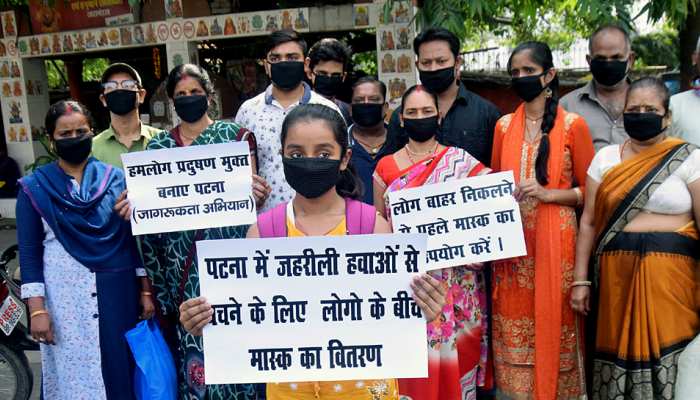 हमलोग प्रदुषण मुक्त
बनाए पटना
(जागरूकता अभियान)
लोग बाहर निकलने
से पहले मास्क का
उपयोग करें ।
पटना में जहरीली हवाओं से
बचने के लिए लोगो के बीच
मास्क का वितरण